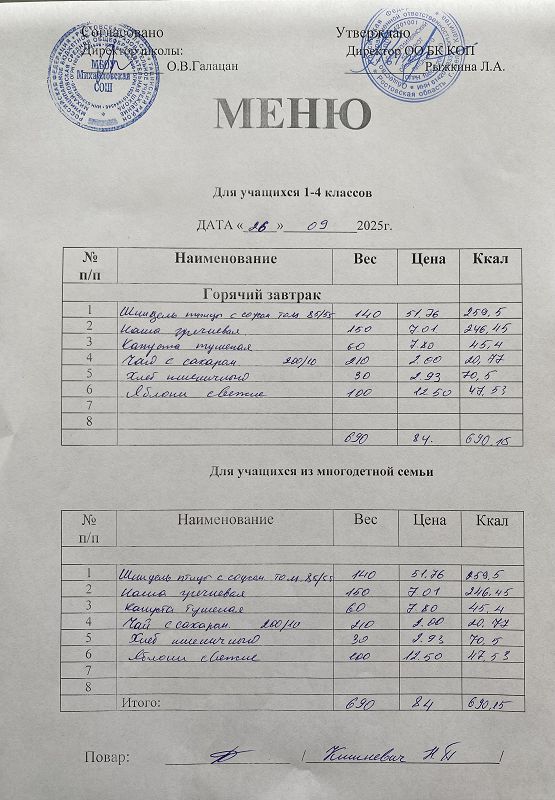 Согласовано Утверждаю
Директор школы: Директор ОО БК КОП
О.В.Галацан Рыжкина Л.А.
МБОУ
Михайловская
СОШ
МЕНЮ
Для учащихся 1-4 классов
ДАТА « 26 » 09 2025г.
№ п/п Наименование Вес Цена Ккал
Горячий завтрак
1 Шницель птицы с соусом том. 85/55 140 51.76 259,5
2 Каша гречневая 150 7.01 246,45
3 Капуста тушеная 60 7.80 45,4
4 Чай с сахаром 200/10 210 2.00 20,77
5 Хлеб пшеничный 30 2.93 70,5
6 Яблоки свежие 100 12.50 47,53
7
8
690 84. 690,15
Для учащихся из многодетной семьи
№ п/п Наименование Вес Цена Ккал
1 Шницель птицы с соусом том. 85/55 140 51.76 259,5
2 Каша гречневая 150 7.01 246.45
3 Капуста тушеная 60 7.80 45,4
4 Чай с сахаром 200/10 210 2.00 20,77
5 Хлеб пшеничный 30 2.93 70,5
6 Яблоки свежие 100 12.50 47,53
7
8
Итого: 690 84 690,15
Повар: / Кишневич Н П /